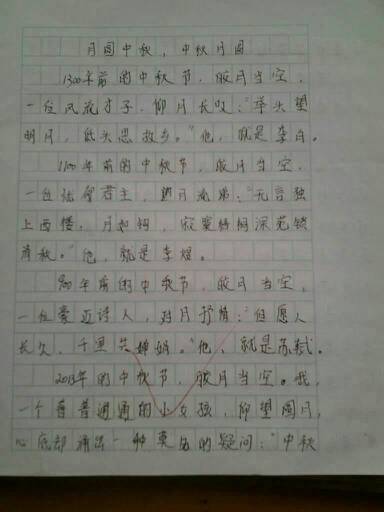 月圆中秋，中秋月圆
1300年前的中秋节，皎月当空，
一位风流才子，仰月长叹："举头望
明月，低头思故乡。"他，就是李白。
1100年前的中秋节，皎月当空，
一位忧郁君主，望月流涕："无言独
上西楼，月如钩，寂寞梧桐深苑锁
清秋。"他，就是李煜。
900年前的中秋节，皎月当空，
一位豪迈诗人，对月抒情："但愿人
长久，千里共婵娟。"他，就是苏轼。
2013年的中秋节，皎月当空。我，
一个普普通通的小女孩，仰望圆月，
心底却涌出一种莫名的疑问："中秋